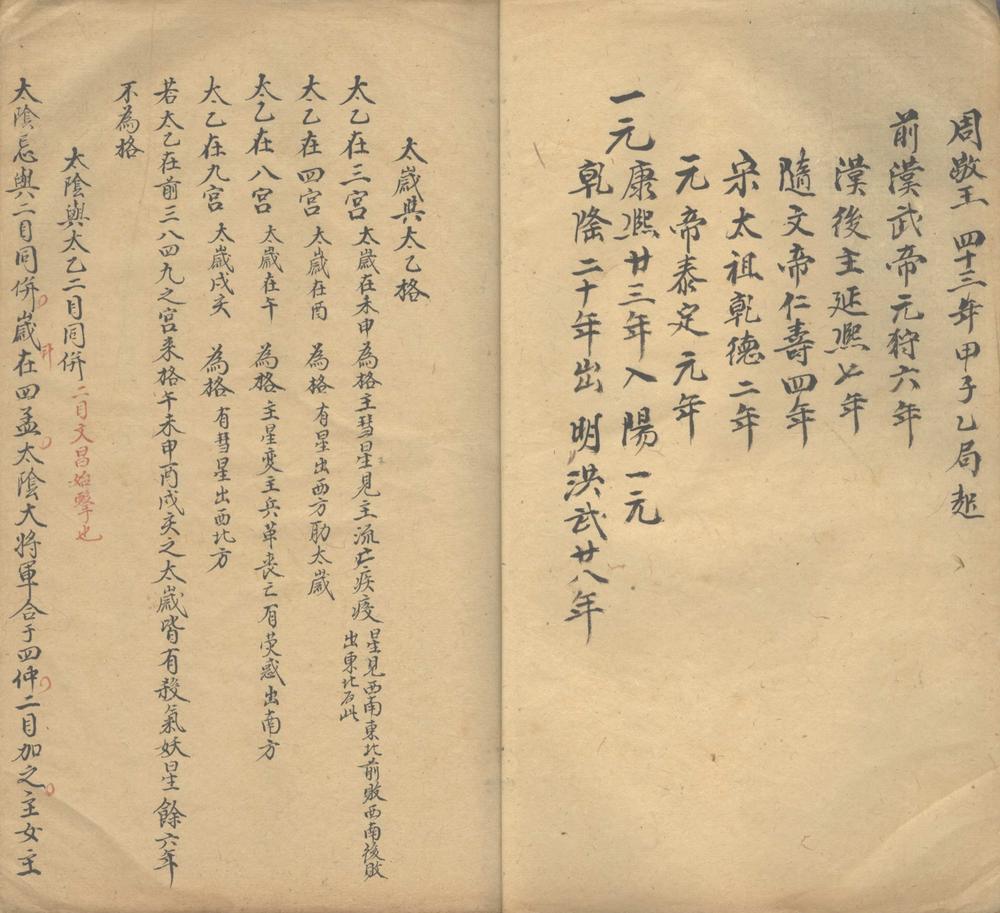 周敬王 四十三年甲子乙局起
前漢武帝元狩六年
漢後主延熈七年
隨文帝仁壽四年
宋太祖乾德二年
元帝泰定元年
一元 康熈廿三年入陽一元
乾隆二十年出 明洪武廿八年
太歲與太乙格
太乙在三宮 太歲在未申 為格 主彗星見主流亡疾疫 星見西南東北前敗西南後敗
出東北方此
太乙在四宮 太歲在酉 為格 有星出西方肋太歲
太乙在八宮 太歲在午 為格 主星变主兵革喪亡有熒惑出南方
太乙在九宮 太歲戌亥 為格 有彗星出西北方
若太乙在前三八四九之宮来格午未申酉戌亥之太歲皆有殺氣妖星 餘六年
不為格
太陰與太乙二目同併 二目文昌始擊也
太陰忌與二目同併歲在四孟太陰大将軍合于四仲二目加之主女主